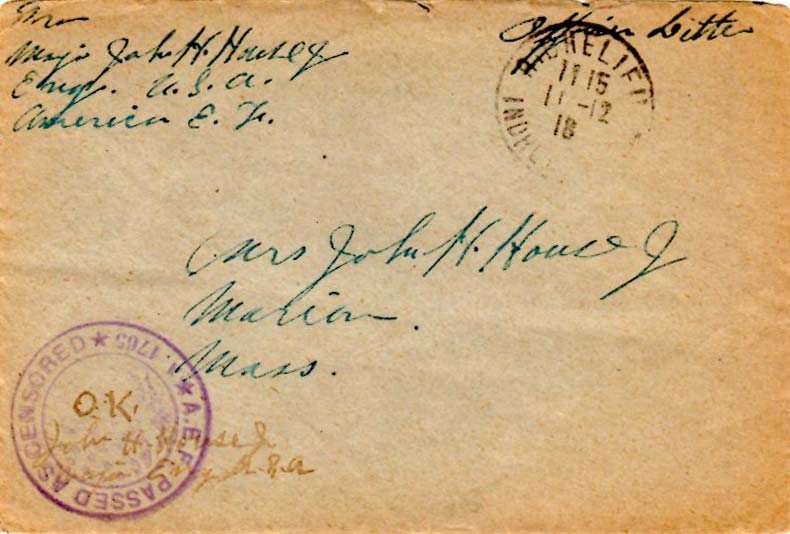 Officer's Letter
Majr John H. House Jr
Engr. U.S.A.
America E. F.
RICHELIEU
11 15
11 -12
18
INDRE-
Mrs John H. House Jr
Marion.
Mass.
A.E.F. PASSED AS CENSORED ★ 1705 ★
O.K.
John H. House Jr
Major Engr U.S.A